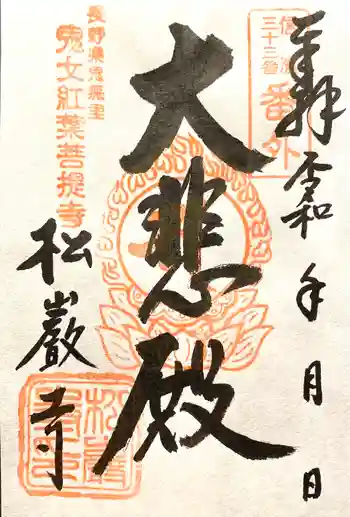 奉拝
令和 年 月 日
信濃
三十三番
番外
大悲殿
長野県鬼無里
鬼女紅葉菩提寺
松巖寺
松巖
寺印